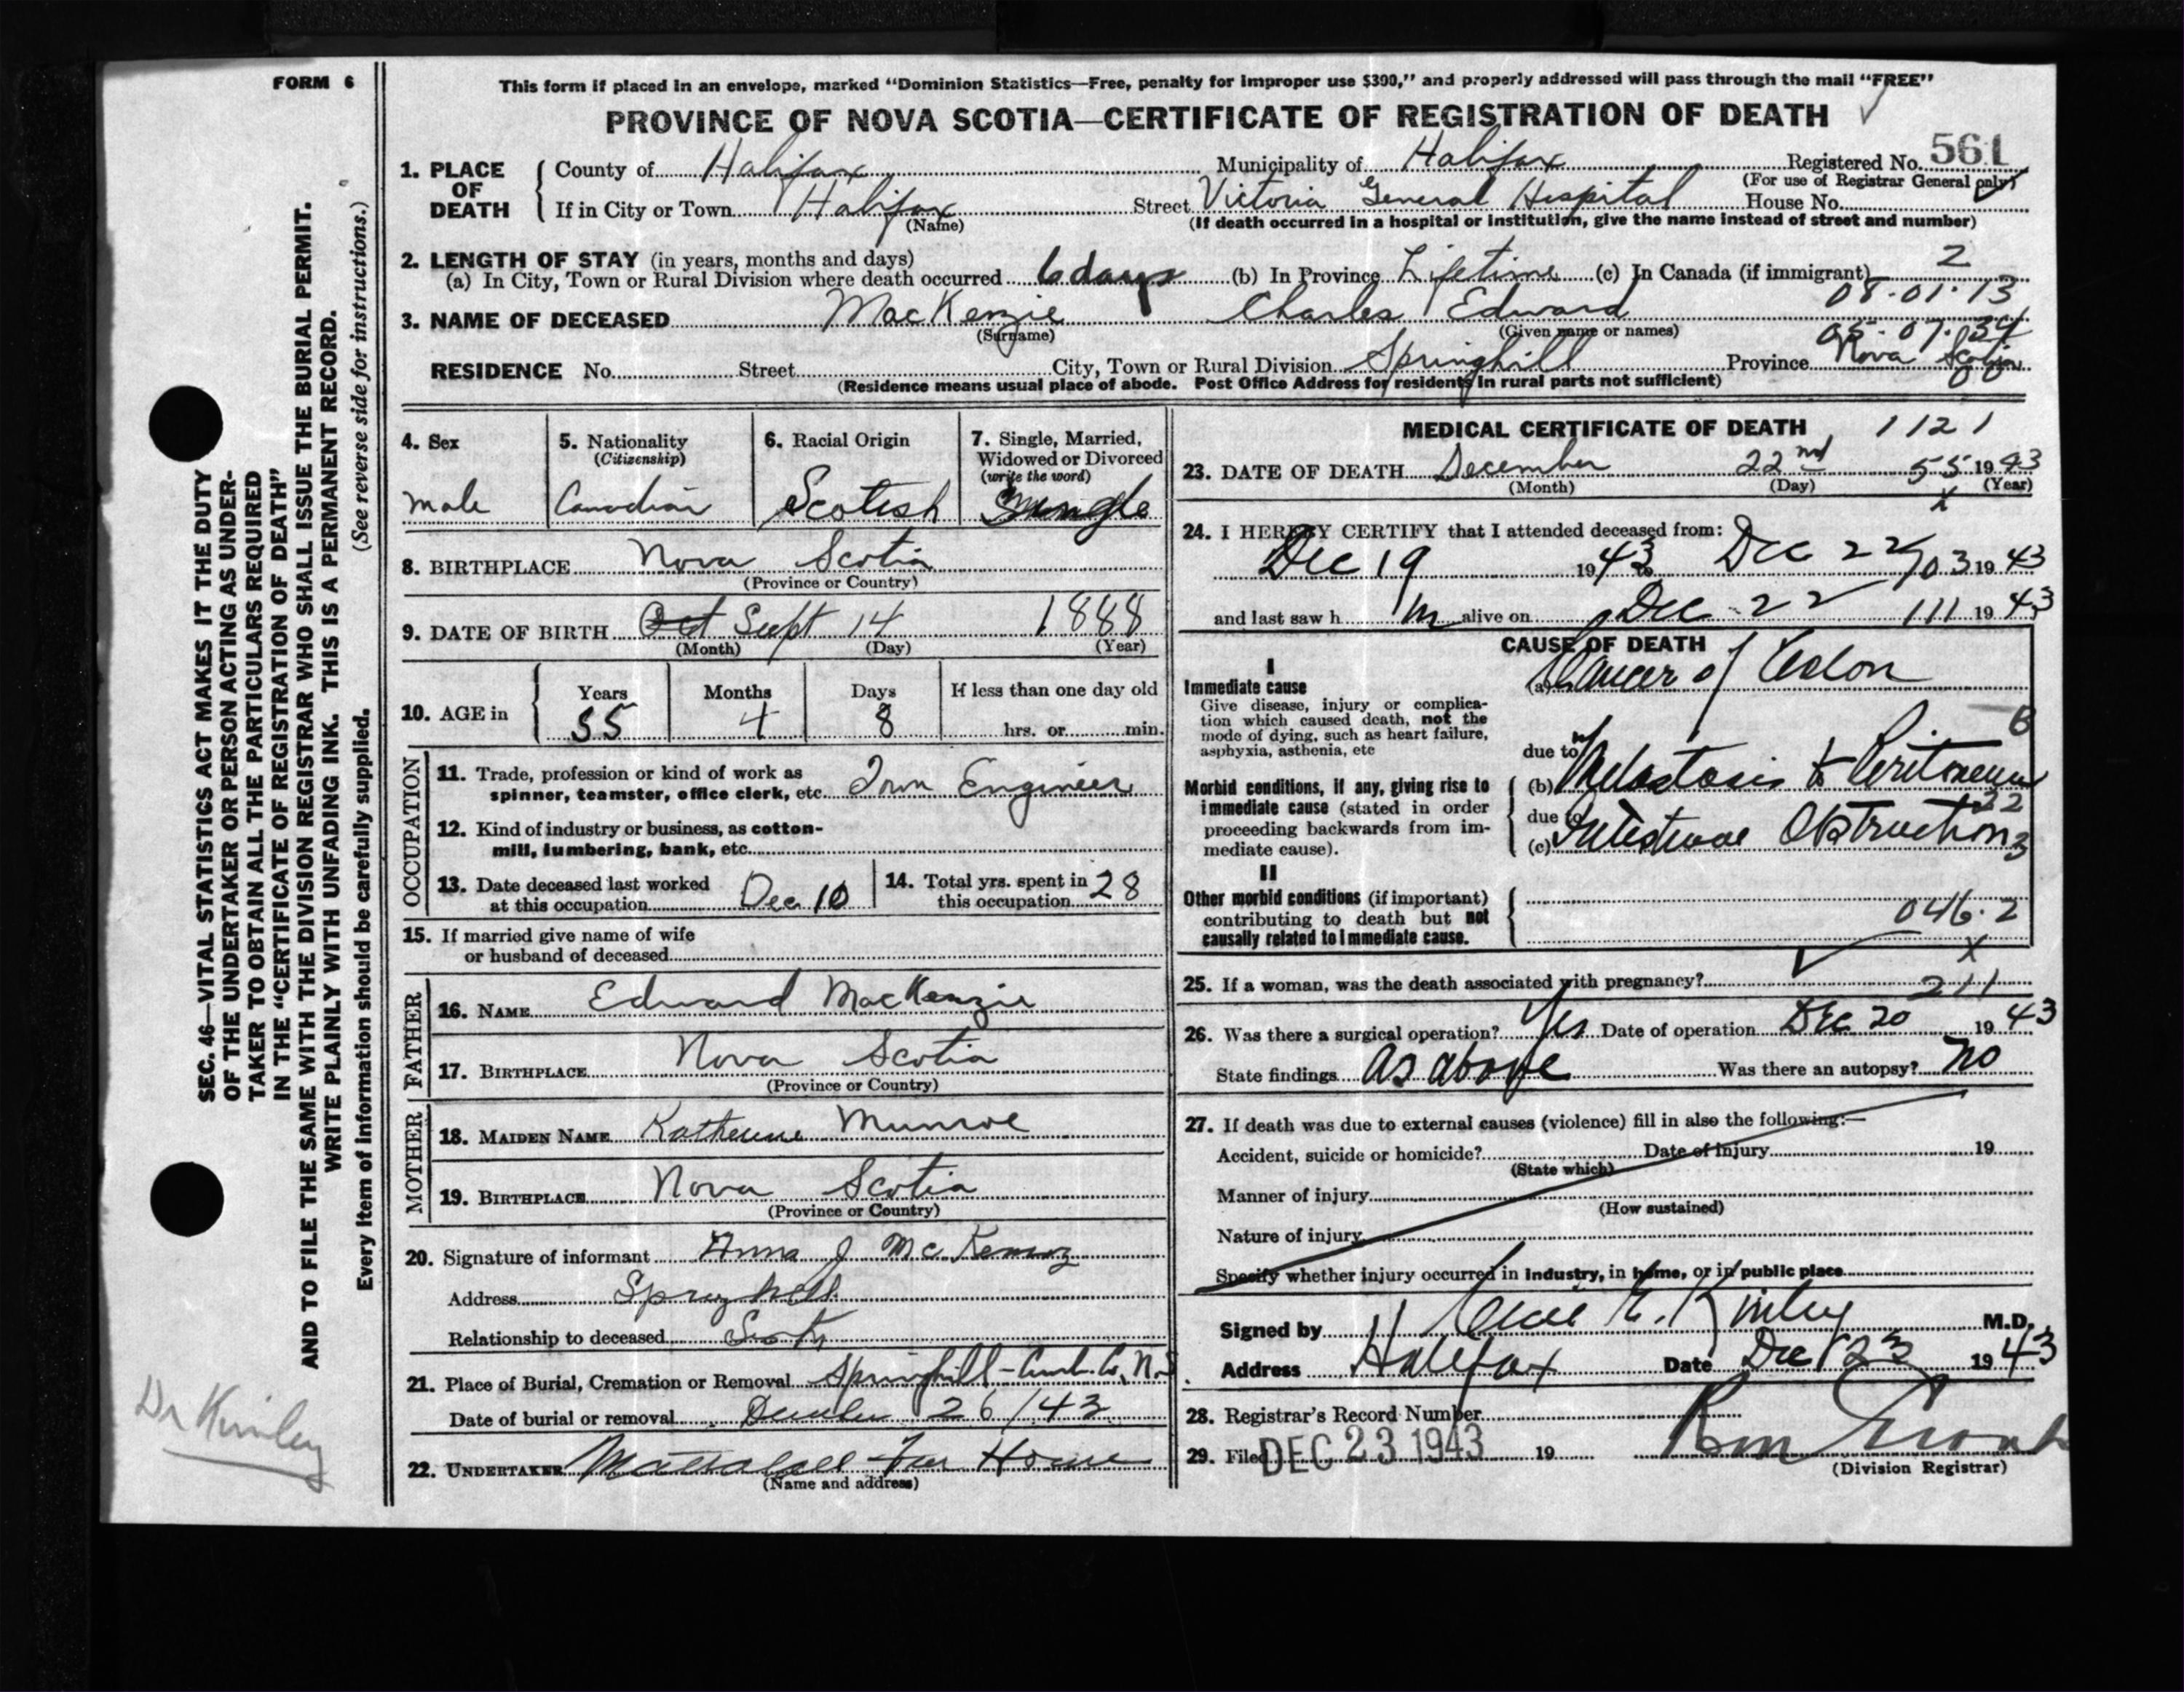 FORM 6
This form if placed in an envelope, marked "Dominion Statistics—Free, penalty for improper use $300," and properly addressed will pass through the mail "FREE"
PROVINCE OF NOVA SCOTIA—CERTIFICATE OF REGISTRATION OF DEATH
1. PLACE OF DEATH
County of Halifax Municipality of Halifax Registered No. 561
(For use of Registrar General only)
If in City or Town Halifax Street Victoria General Hospital House No.
(Name) (If death occurred in a hospital or institution, give the name instead of street and number)
2. LENGTH OF STAY (in years, months and days) 2
(a) In City, Town or Rural Division where death occurred 6 days (b) In Province Lifetime (c) In Canada (if immigrant)
08-01-13
3. NAME OF DECEASED MacKenzie Charles Edward
(Surname) (Given name or names) 05-07-34
RESIDENCE No. Street City, Town or Rural Division Springhill Province Nova Scotia
(Residence means usual place of abode. Post Office Address for residents in rural parts not sufficient)
4. Sex
male
5. Nationality
(Citizenship)
Canadian
6. Racial Origin
Scotish
7. Single, Married,
Widowed or Divorced
(write the word)
Single
8. BIRTHPLACE Nova Scotia
(Province or Country)
9. DATE OF BIRTH Oct Sept 14 1888
(Month) (Day) (Year)
10. AGE in
Years Months Days If less than one day old
55 4 8 hrs. or min.
OCCUPATION
11. Trade, profession or kind of work as
spinner, teamster, office clerk, etc. Engineer
12. Kind of industry or business, as cotton-
mill, lumbering, bank, etc.
13. Date deceased last worked
at this occupation Dec 10
14. Total yrs. spent in
this occupation 28
15. If married give name of wife
or husband of deceased
FATHER
16. NAME Edward MacKenzie
17. BIRTHPLACE Nova Scotia
(Province or Country)
MOTHER
18. MAIDEN NAME Katherine Munroe
19. BIRTHPLACE Nova Scotia
(Province or Country)
20. Signature of informant Anna J
Address Springhill
Relationship to deceased
21. Place of Burial, Cremation or Removal Springhill - Cumb. Co, N.S.
Date of burial or removal December 26/43
22. UNDERTAKER Home
(Name and address)
MEDICAL CERTIFICATE OF DEATH 1121
23. DATE OF DEATH December 22nd 55 1943
(Month) (Day) (Year)
x
24. I HEREBY CERTIFY that I attended deceased from:
Dec 19 1943 to Dec 22 703 1943
and last saw h im alive on Dec 22 111 1943
CAUSE OF DEATH
I
Immediate cause
Give disease, injury or complica-
tion which caused death, not the
mode of dying, such as heart failure,
asphyxia, asthenia, etc
(a) Cancer of Colon
6
due to
Morbid conditions, if any, giving rise to
immediate cause (stated in order
proceeding backwards from im-
mediate cause).
(b) Metastasis to Peritoneum
22
due to
(c) Intestinal Obstruction
3
II
Other morbid conditions (if important)
contributing to death but not
causally related to immediate cause.
046.2
x
25. If a woman, was the death associated with pregnancy? 211
26. Was there a surgical operation? Yes Date of operation Dec 20 1943
State findings as above Was there an autopsy? no
27. If death was due to external causes (violence) fill in also the following:—
Accident, suicide or homicide? Date of injury 19
(State which)
Manner of injury
(How sustained)
Nature of injury
Specify whether injury occurred in industry, in home, or in public place
Signed by E. Kinley M.D.
Address Halifax Date Dec 23 1943
28. Registrar's Record Number
29. Filed DEC 23 1943 19
(Division Registrar)
SEC. 46—VITAL STATISTICS ACT MAKES IT THE DUTY
OF THE UNDERTAKER OR PERSON ACTING AS UNDER-
TAKER TO OBTAIN ALL THE PARTICULARS REQUIRED
IN THE "CERTIFICATE OF REGISTRATION OF DEATH"
AND TO FILE THE SAME WITH THE DIVISION REGISTRAR WHO SHALL ISSUE THE BURIAL PERMIT.
WRITE PLAINLY WITH UNFADING INK. THIS IS A PERMANENT RECORD.
Every item of information should be carefully supplied. (See reverse side for instructions.)
Dr Kinley